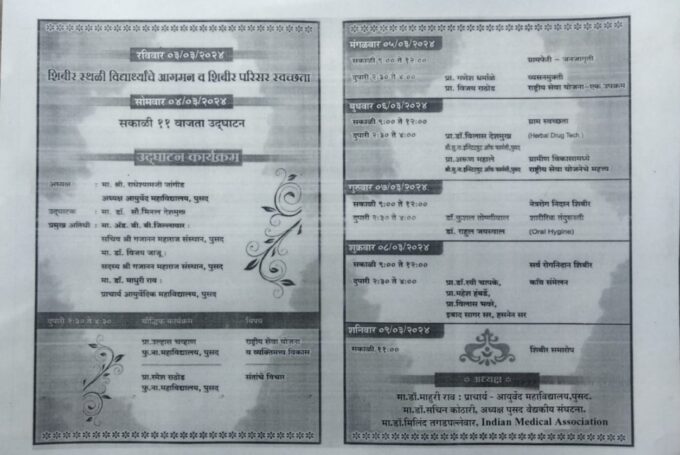 रविवार ०३/०३/२०२४
शिबीर स्थळी विद्यार्थ्यांचे आगमन व शिबीर परिसर स्वच्छता
सोमवार ०४/०३/२०२४
सकाळी ११ वाजता उद्घाटन
उद्घाटन कार्यक्रम
अध्यक्ष : मा. श्री. राधेश्यामजी जांगीड
अध्यक्ष आयुर्वेद महाविद्यालय, पुसद
उद्घाटक : मा. डॉ. सौ. मिनल देशमुख
प्रमुख अतिथी : मा. अॅड. वी. बी. जिल्लावार :
सचिव श्री गजानन महाराज संस्थान, पुसद
मा. डॉ. विजय जाजू :
सदस्य श्री गजानन महाराज संस्थान, पुसद
मा. डॉ. माधुरी राव :
प्राचार्य आयुर्वेदिक महाविद्यालय, पुसद
दुपारी २:३० ते ४:३० बौद्धिक कार्यक्रम विषय
प्रा.उल्हास चव्हाण राष्ट्रीय सेवा योजना
फु.ना.महाविद्यालय, पुसद व व्यक्तिमत्व विकास
प्रा.रमेश राठोड संतांचे विचार
फु.ना.महाविद्यालय, पुसद
मंगळवार ०५/०३/२०२४
सकाळी ९:०० ते १२:०० ग्रामफेरी - जनजागृती
दुपारी २:३० ते ४:०० प्रा. गणेश धर्माळे व्यसनमुक्ती
प्रा. विजय राठोड राष्ट्रीय सेवा योजना-एक उपक्रम
बुधवार ०६/०३/२०२४
सकाळी ९:०० ते १२:०० ग्राम स्वच्छता
दुपारी २:३० ते ४:०० प्रा.डॉ.विलास देशमुख (Herbal Drug Tech.)
प्रा.अरूण महाले ग्रामीण विकासामध्ये
राष्ट्रीय सेवा योजनेचे महत्व
गुरुवार ०७/०३/२०२४
सकाळी ९:०० ते १२:०० नेत्ररोग निदान शिबीर
दुपारी २:३० ते ४:०० डॉ.कुशल शारीरिक तंदुरुस्ती
डॉ. राहुल जयस्वाल (Oral Hygine)
शुक्रवार ०८/०३/२०२४
सकाळी ९:०० ते १२:०० सर्व रोगनिदान शिबीर
दुपारी २:३० ते ४:०० प्रा.डॉ.रवी चापके, कवि संमेलन
प्रा.महेश हंबर्डे,
प्रा.विलास भवरे,
इबाद सागर सर, हसनेन सर
शनिवार ०९/०३/२०२४
सकाळी ११:०० शिबीर समारोप
अध्यक्ष
मा.डॉ.माधुरी राव : प्राचार्य - आयुर्वेद महाविद्यालय,पुसद.
मा.डॉ.सचिन कोठारी, अध्यक्ष पुसद वैद्यकीय संघटना.
मा.डॉ.मिलिंद तगडपल्लवार, Indian Medical Association